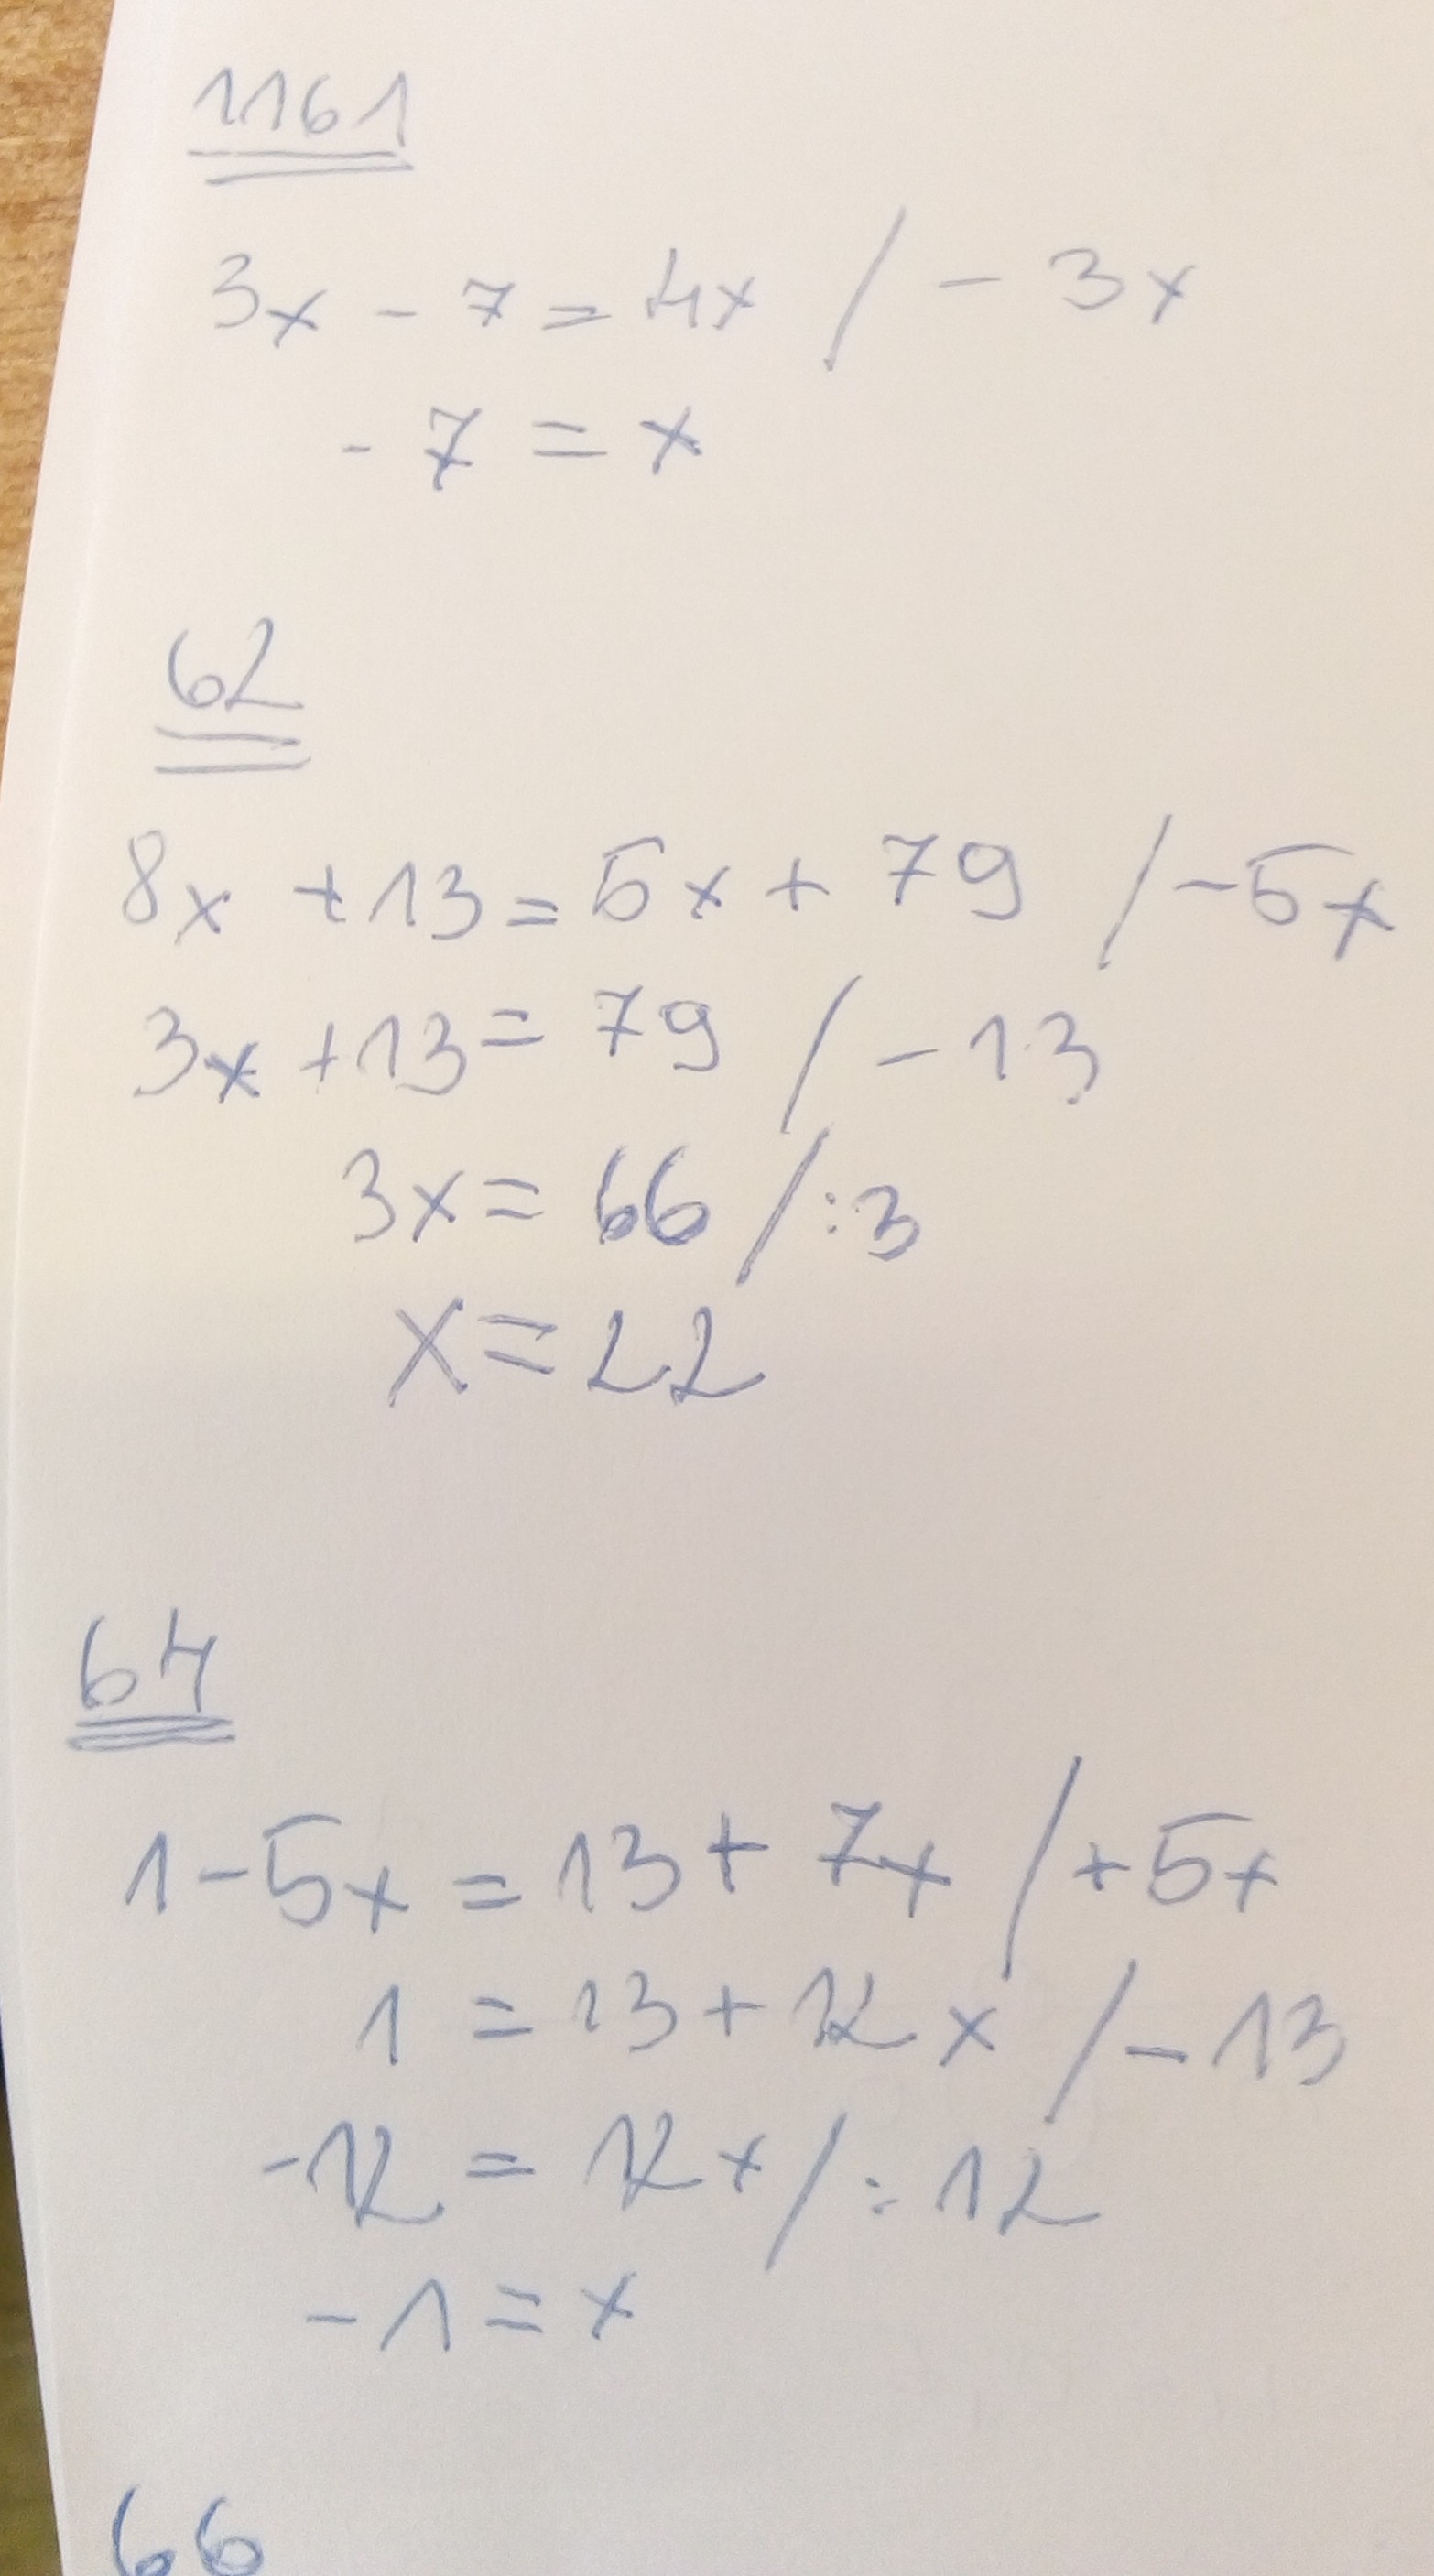 1161
3x - 7 = 4x / - 3x
- 7 = x
62
8x + 13 = 5x + 79 / - 5x
3x + 13 = 79 / - 13
3x = 66 / : 3
x = 22
64
1 - 5x = 13 + 7x / + 5x
1 = 13 + 12x / - 13
- 12 = 12x / : 12
- 1 = x
66